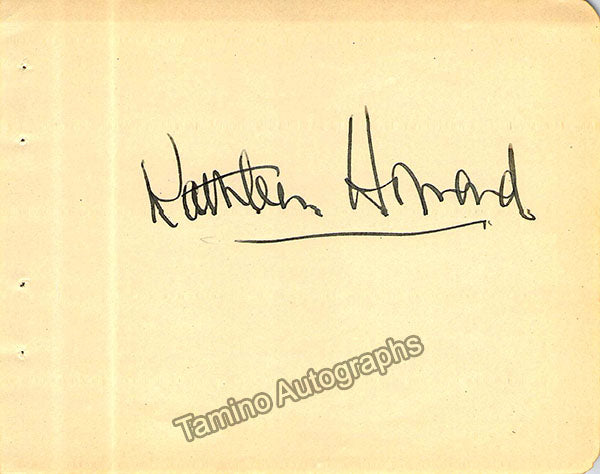 Kathleen Howard.
Tamino Autographs